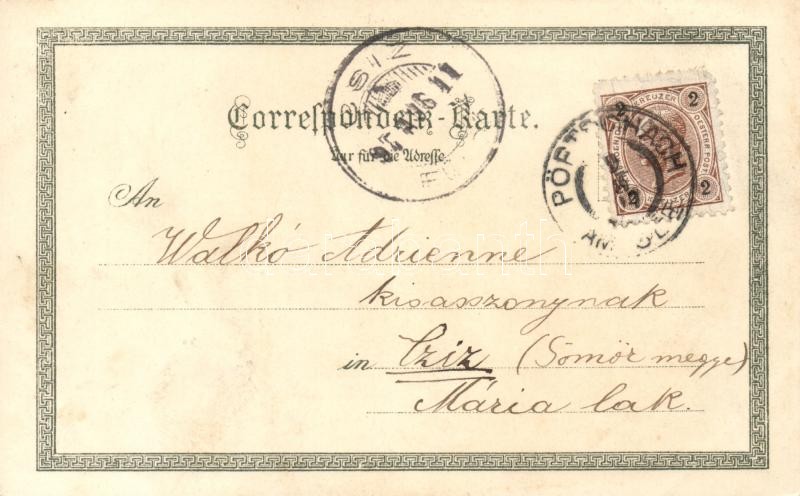 Correspondenz-Karte.
Nur für die Adresse.
2 KREUZER 2
OESTERR. POST
2 2
PÖRTSCHACH
AM
An
Walkó Adrienne
kisasszonynak
in Cziz (Gömör megye)
Mária lak.